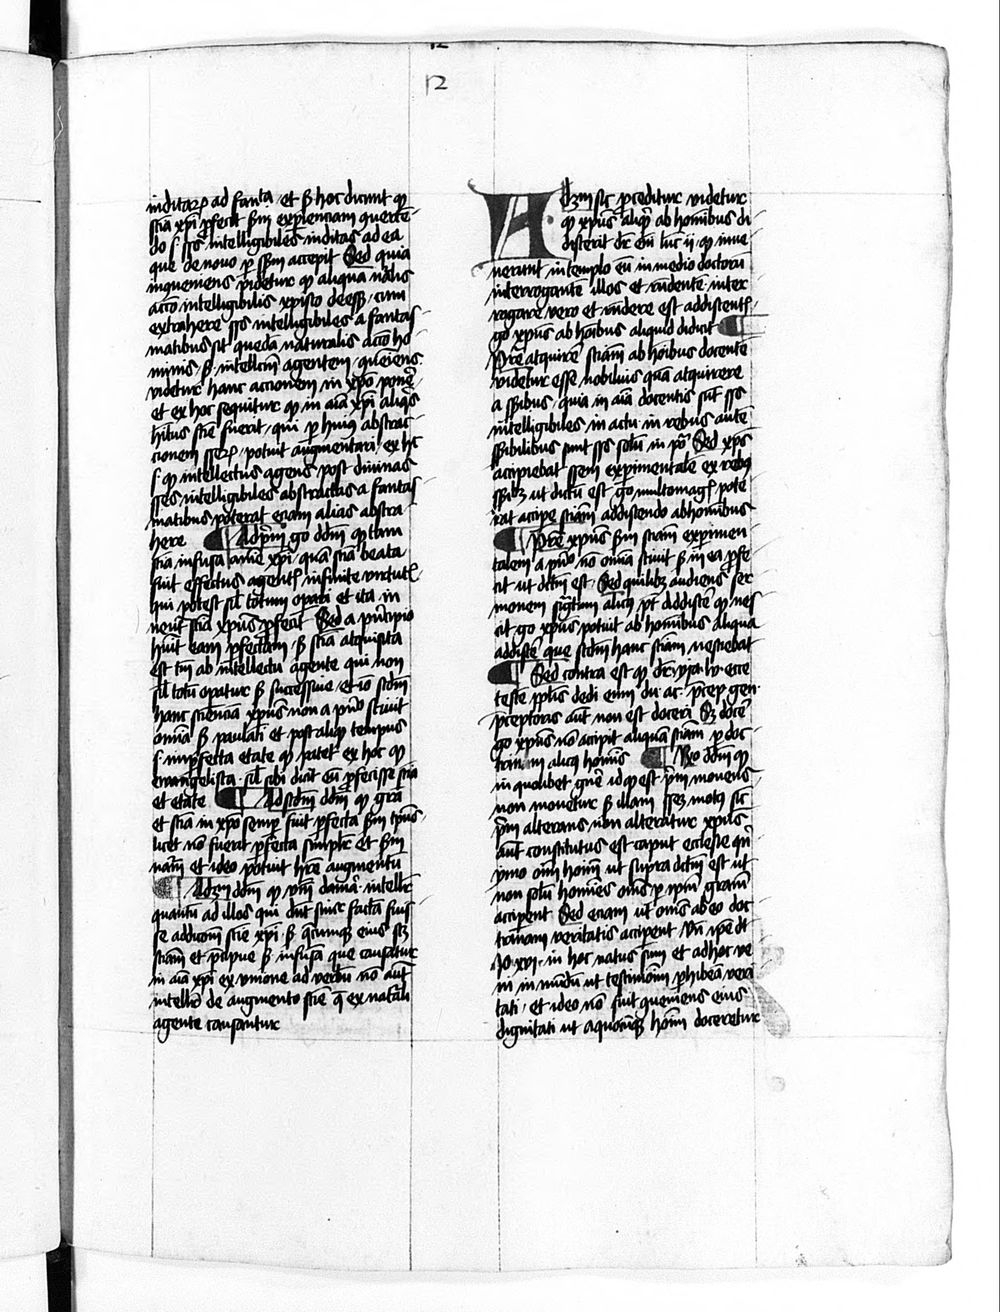 12
inditarum ad fanta. et sic hoc dicunt qp
scia xpi pfecit scdm experienciam querte
do s. sps intelligibiles inditas ad ea
que de novo p sensum accepit Sed quia
inqueniens videtur qp aliqua nalis
accio intelligibilis xpisto deesset, cum
extrahere sps intelligibiles a fantas
matibus sit queda naturalis accio ho
minis scdm intellcm agentem queiens
videtur hanc accionem in xpo ponere
et ex hoc sequitur qp in aia xpi aliqs
hitus scie fuerit, qui p hmoi abstrac
cionem spcrum potuit augmentari, ex hc
s. qp intellectus agens post divinas
spes intelligibiles abstractas a fantas
matibus poterat eciam alias abstra
here Ad pm go ddm qp tam
scia infusa anime xpi qua scia beata
fuit effectus agentis infinite virtutis
qui potest sil totum opari et ita in
neutra scia xpus pfecit Sed a principio
huit eam pfectam, sed scia acquisita
est tm ab intellectu agente qui non
sil totu opatur sed successive, et io scdm
hanc scienciam xpus non a pnº scivit
omnia sed paulati et post aliqd tempus
s. in pfecta etate qp patet ex hoc qp
evangelista sil sibi dicit eu pfecisse scia
et etate Ad scdm ddm qp gra
et scia in xpo semp fuit pfecta scdm tpus
licet nõ fuerit pfecta simplr et scdm
nam et ideo potuit hre augmentu
Ad 3m ddm qp vm dama. intellr
quantu ad illos qui dnt simr facta fuis
se addicoem scie xpi sed qcumqz eius scz
sciam et pcipue sed infusa que causatur
in aia xpi ex unione ad verbu nõ aut
intellr de augmento scie q ex natali
agente causantur
Ad 3m sic pceditur videtur
qp xpus aliqd ab hominibus di
disterit dr em luc ii qp inve
nerunt in templo eu in medio doctoru
interrogante illos et rndente, inter
rogare vero et rndere est addiscentis
go xpus ab hoibus aliquid didicit
Pre acquire sciam ab hoibus docente
videtur esse nobilius qua acquirere
a sensibus, quia in aia docentis sunt sps
intelligibiles in actu, in rebus aute
sensibilibus sunt sps solu in poa Sed xps
accipiebat sciem experimentale ex rebus
sensibz ut dictu est, go multomagis pote
rat accipe sciam addiscendo ab hominibus
Pre xpus scdm sciam experimen
talem a pnº nõ omnia scivit sed in ea pfe
cit ut dcm est, Sed quilibz audiens ser
monem signtium alicuius pt addiscere qp nes
cit go xpus potuit ab hominibus aliqua
addiscere que scdm hanc sciam nesciebat
Sed contra est qp dr ysa. lv. ecce
teste pplis dedi eum du. ac. pcep. gen.
pceptoris aut non est doceri Sz docere
go xpus nõ accipit aliqua sciam p doc
trinam alicuius hominis Ro ddm qp
in quolibet gne id qp est pm movens
non movetur scdm illam spem motus sic
pm alterans non alteratur xpus
aut constitutus est caput ecclesie qn
ymo omi hoim ut supra dctm est ut
non solu homines oms p ipm gram
acciperent Sed eciam ut oms ab eo doc
trinam veritatis acciperent Un ipe dt
Jo xvi. in hoc natus sum et ad hoc ve
ni in mundu ut testimoniu phibea veri
tati, et ideo nõ fuit queniens eius
dignitati ut a quocumqz homi doceretur